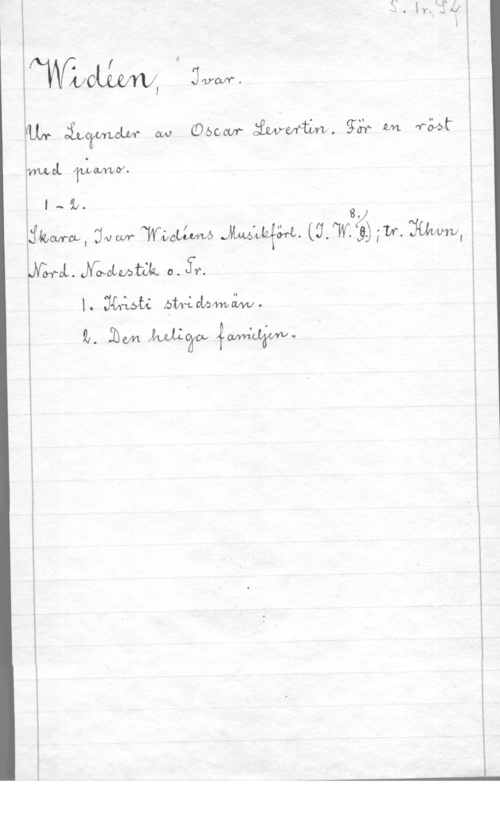 Widéen, Ivar.
Ur Legender av Oscar Levertin. För en röst
med piano.
1-2.
Skara, Ivar Widéens Musikförl. (I.W. 8.); tr. Khvn,
Nord. Nodestik o. Tr.
1. Kristi stridsmän.
2. Den heliga familjen.